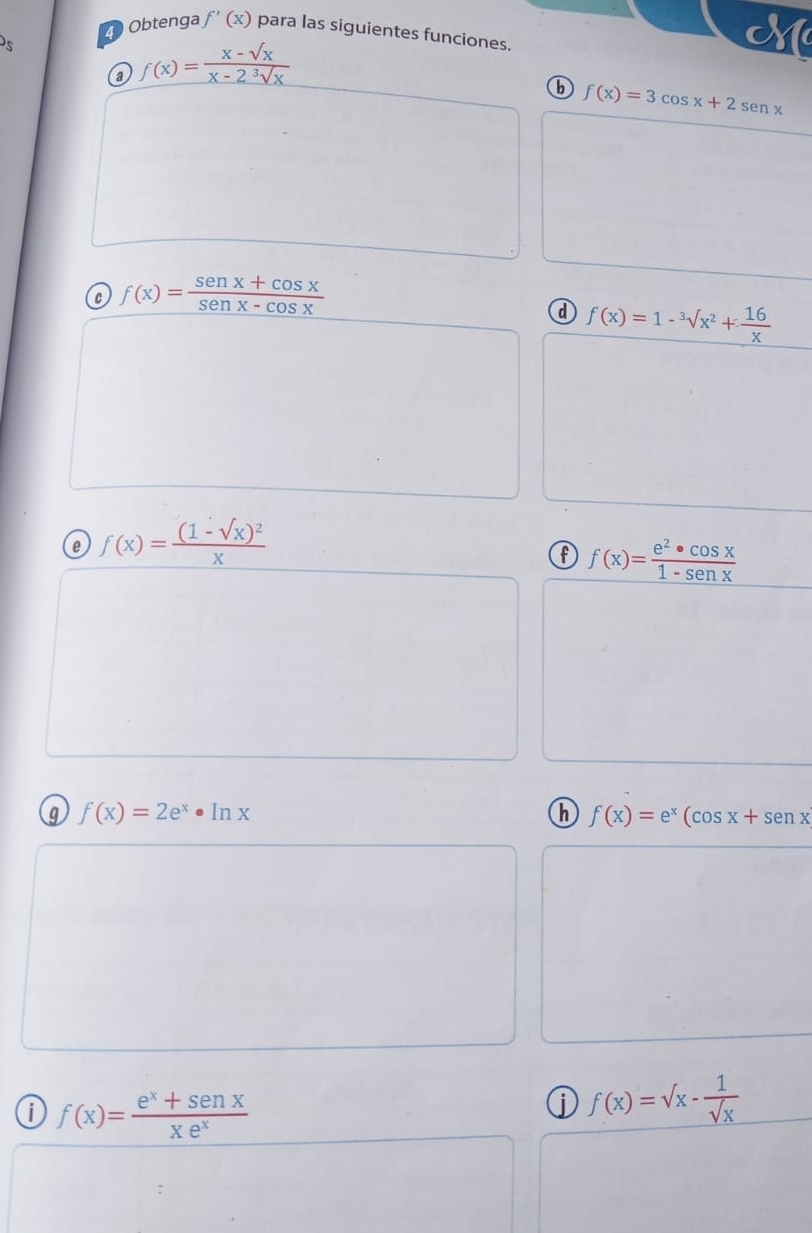 4 Obtenga f' (x) para las siguientes funciones.
a f(x) = (x - √x)/(x - 2 ³√x)
b f(x) = 3 cos x + 2 sen x
c f(x) = (sen x + cos x)/(sen x - cos x)
d f(x) = 1 - ³√x² + 16/x
e f(x) = (1 - √x)²/x
f f(x)= (e² • cos x)/(1 - sen x)
g f(x) = 2eˣ • In x
h f(x) = eˣ (cos x + sen x
i f(x)= (eˣ + sen x)/(x eˣ)
j f(x) = √x - 1/√x